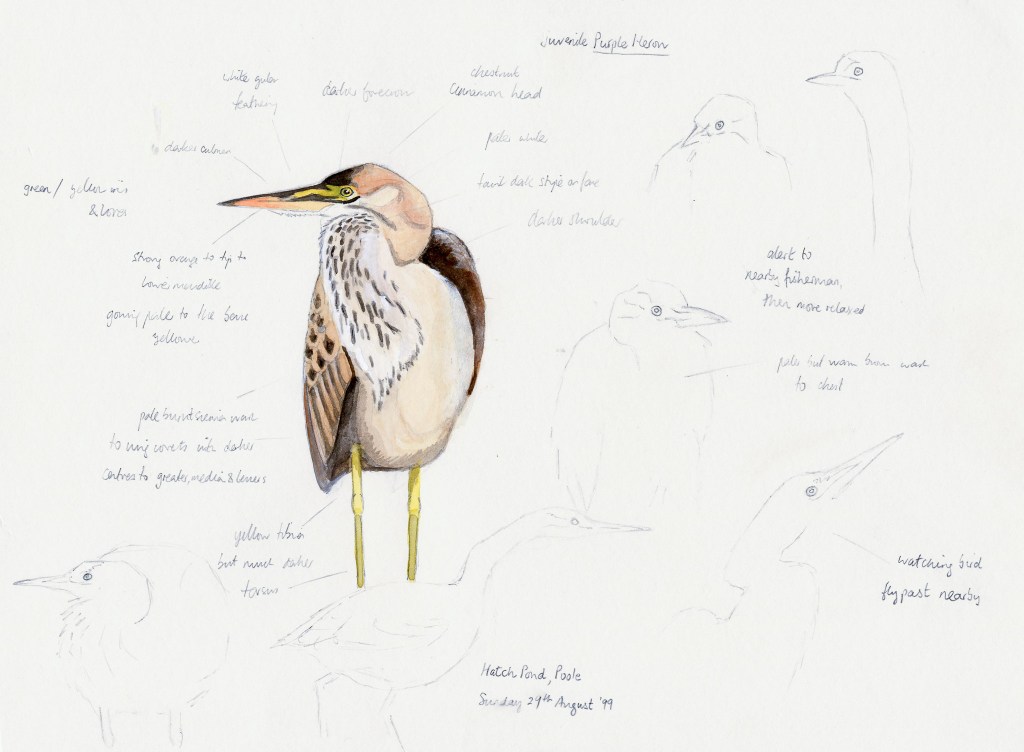 Juvenile Purple Heron
white gular
feathering
darker forecrown
chestnut
cinnamon head
darker culmen
paler white
green / yellow iris
& lores
faint dark stripe on
darker shoulder
strong orange to tip to
lower mandible
going pale to the base
yellow
alert to
nearby fisherman,
then more relaxed
paler but warm brown wash
to chest
pale burnt sienna wash
to wing coverts with darker
centres to greater, median & lessers
yellow tibia
but much darker
tarsus
watching bird
fly past nearby
Hatch Pond, Poole
Sunday 29th August '99